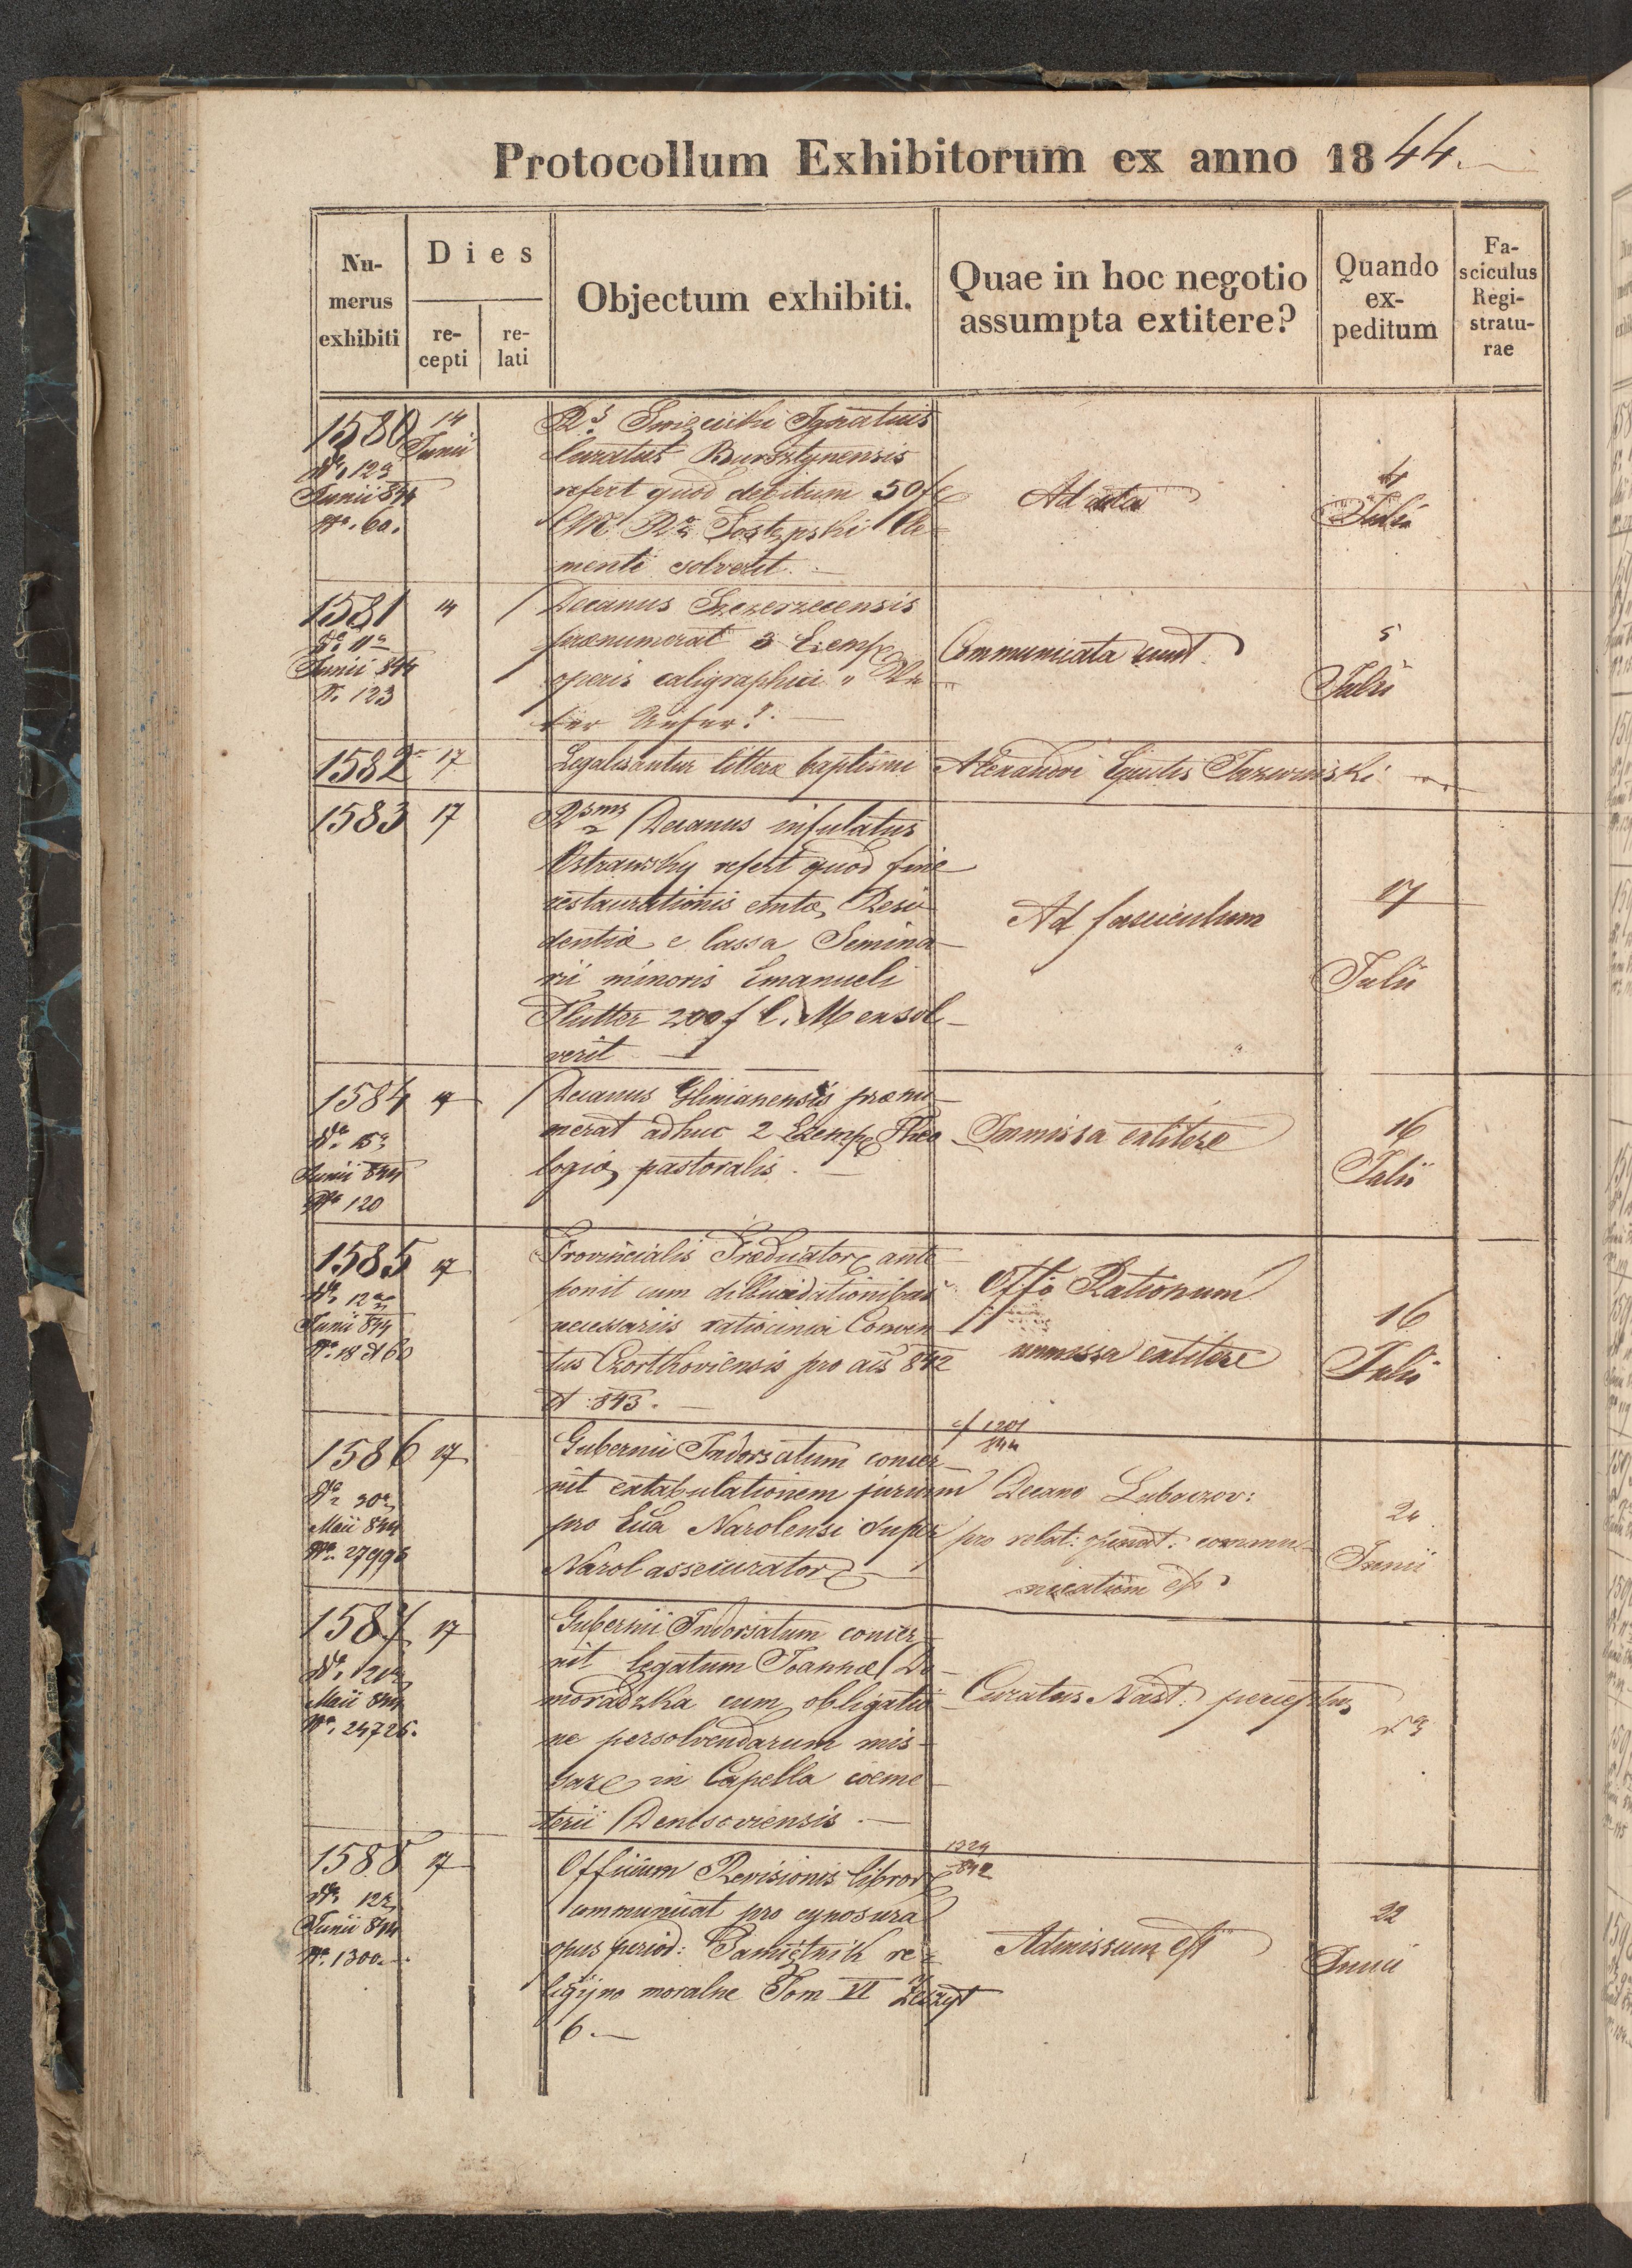 Protocollum Exhibitorum ex anno 1844.
Nu-
merus
exhibiti
Dies
re-
cepti
re-
lati
Objectum exhibiti.
Quae in hoc negotio
assumpta extitere?
Quando
ex-
peditum
Fa-
sciculus
Regi-
stratu-
rae
1580 14 Junii
dto 12a
Junii 844
No. 60.
Ignatius
Curatus Bursztynensis
refert quod debitum 50 f
menti solverit.
Ad acta
Julii
1581 14
de 11a
Junii 844
N. 123
Decanus Szczerzecensis
praenumerat 3 Exemp
operis caligraphici
Communicata sunt
5
Julii
1582 17
Legalisantur litterae baptismi Alexandri Equitis
1583 17
Decanus infulatus
Ostrawsky refert quod fine
restaurationis emtae Resi-
dentiae e Cassa Semina-
rii minoris Emanueli
Flutter 200 f C. M exsol-
verit
Ad fasciculum
17
Julii
1584 17
dto 15a
Junii 844
No 120
Decanus Glinianensis praenu-
merat adhuc 2 Exemp Theo-
logiae pastoralis.
Immissa extitere
16
Julii
1585 17
dto 12a
Junii 844
No. 18 et 60
Provincialis Praedicator ante
ponit cum dillucidationibus
necessariis ratiocinia Conven-
tus Czortkoviensis pro ais 842
et 843.
Offo Rationum
immissa extitere
16
Julii
1586 17
dto 30a
Maii 844
No. 27996
Gubernii Indorsatum concer-
nit extabulationem jurium
pro Ecla Narolensi super
Narol assecurator
cf 1201
844
Decano Lubaczov:
pro relat: opinat. commu-
nicatum est
24
Junii
1587 17
Maii 844
No. 24726.
Gubernii Indorsatum concer-
nit legatum Joannae Do-
moradzka cum obligatio-
ne persolvendarum mis-
sar in Capella coeme-
terii Denisoviensis.
Curatus Nast:
1588 17
dto 12a
Junii 844
No. 1300
Officium Revisionis libror
communicat pro cynosura
opus period: Pamiętnik re-
ligijno moralne Tom VI Zeszyt
6.
1324
842
Admissum est
22
Junii